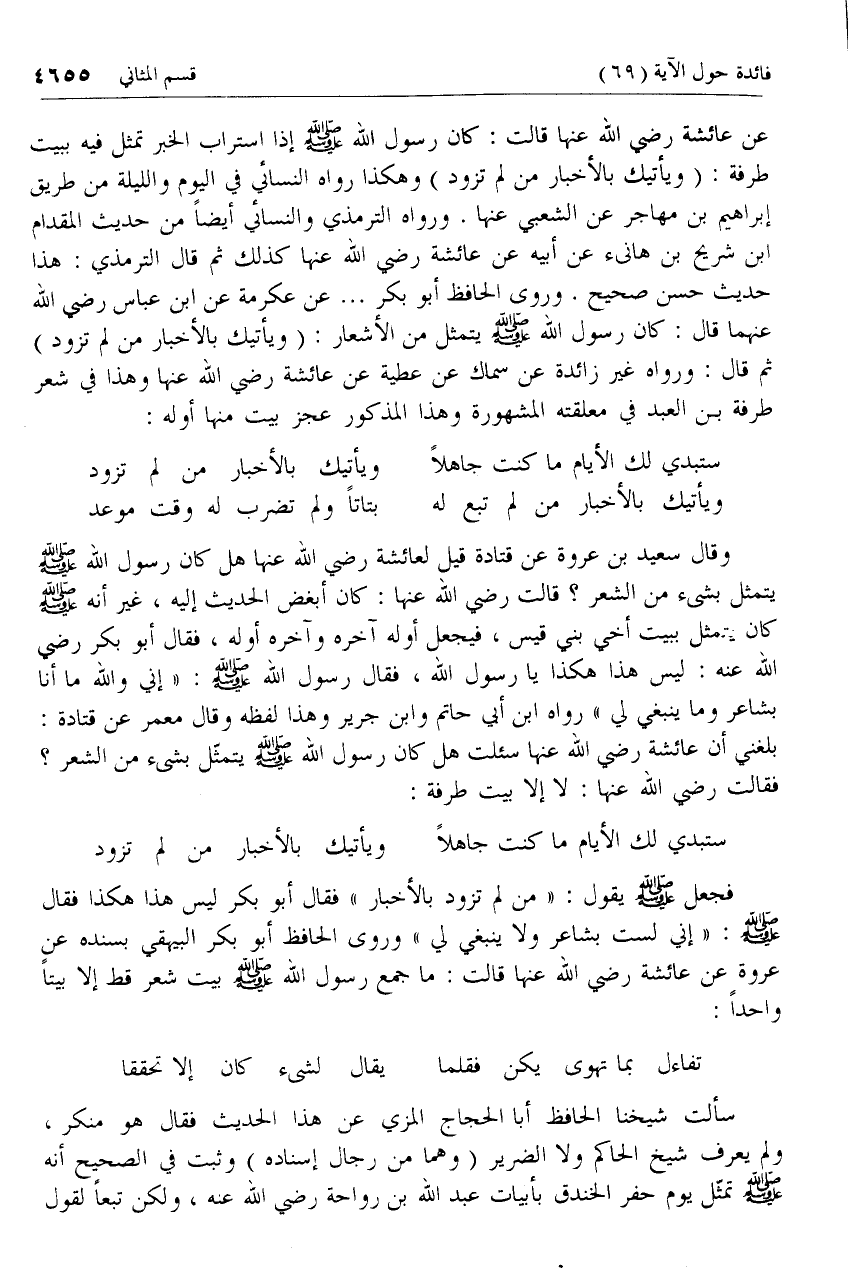 فائدة حول الآية (٦٩) قسم المثاني ٤٦٥٥
عن عائشة رضي الله عنها قالت : كان رسول الله ﷺ إذا استراب الخبر تمثل فيه ببيت
طرفة : ( ويأتيك بالأخبار من لم تزود ) وهكذا رواه النسائي في اليوم والليلة من طريق
إبراهيم بن مهاجر عن الشعبي عنها . ورواه الترمذي والنسائي أيضاً من حديث المقدام
ابن شريح بن هانىء عن أبيه عن عائشة رضي الله عنها كذلك ثم قال الترمذي : هذا
حديث حسن صحيح . وروى الحافظ أبو بكر ... عن عكرمة عن ابن عباس رضي الله
عنهما قال : كان رسول الله ﷺ يتمثل من الأشعار : ( ويأتيك بالأخبار من لم تزود )
ثم قال : ورواه غير زائدة عن سماك عن عطية عن عائشة رضي الله عنها وهذا في شعر
طرفة بـن العبد في معلقته المشهورة وهذا المذكور عجز بيت منها أوله :
ستبدي لك الأيام ما كنت جاهلاً ويأتيك بالأخبار من لم تزود
ويأتيك بالأخبار من لم تبع له بتاتاً ولم تضرب له وقت موعد
وقال سعيد بن عروة عن قتادة قيل لعائشة رضي الله عنها هل كان رسول الله ﷺ
يتمثل بشىء من الشعر ؟ قالت رضي الله عنها : كان أبغض الحديث إليه ، غير أنه ﷺ
كان يتمثل ببيت أخي بني قيس ، فيجعل أوله آخره وآخره أوله ، فقال أبو بكر رضي
الله عنه : ليس هذا هكذا يا رسول الله ، فقال رسول الله ﷺ : « إني والله ما أنا
بشاعر وما ينبغي لي » رواه ابن أبي حاتم وابن جرير وهذا لفظه وقال معمر عن قتادة :
بلغني أن عائشة رضي الله عنها سئلت هل كان رسول الله ﷺ يتمثّل بشىء من الشعر ؟
فقالت رضي الله عنها : لا إلا بيت طرفة :
ستبدي لك الأيام ما كنت جاهلاً ويأتيك بالأخبار من لم تزود
فجعل ﷺ يقول : « من لم تزود بالأخبار » فقال أبو بكر ليس هذا هكذا فقال
ﷺ : « إني لست بشاعر ولا ينبغي لي » وروى الحافظ أبو بكر البيهقي بسنده عن
عروة عن عائشة رضي الله عنها قالت : ما جمع رسول الله ﷺ بيت شعر قط إلا بيتاً
واحداً :
تفاءل بما تهوى يكن فقلما يقال لشىء كان إلا تحققا
سألت شيخنا الحافظ أبا الحجاج المزي عن هذا الحديث فقال هو منكر ،
ولم يعرف شيخ الحاكم ولا الضرير ( وهما من رجال إسناده ) وثبت في الصحيح أنه
ﷺ تمثّل يوم حفر الخندق بأبيات عبد الله بن رواحة رضي الله عنه ، ولكن تبعاً لقول